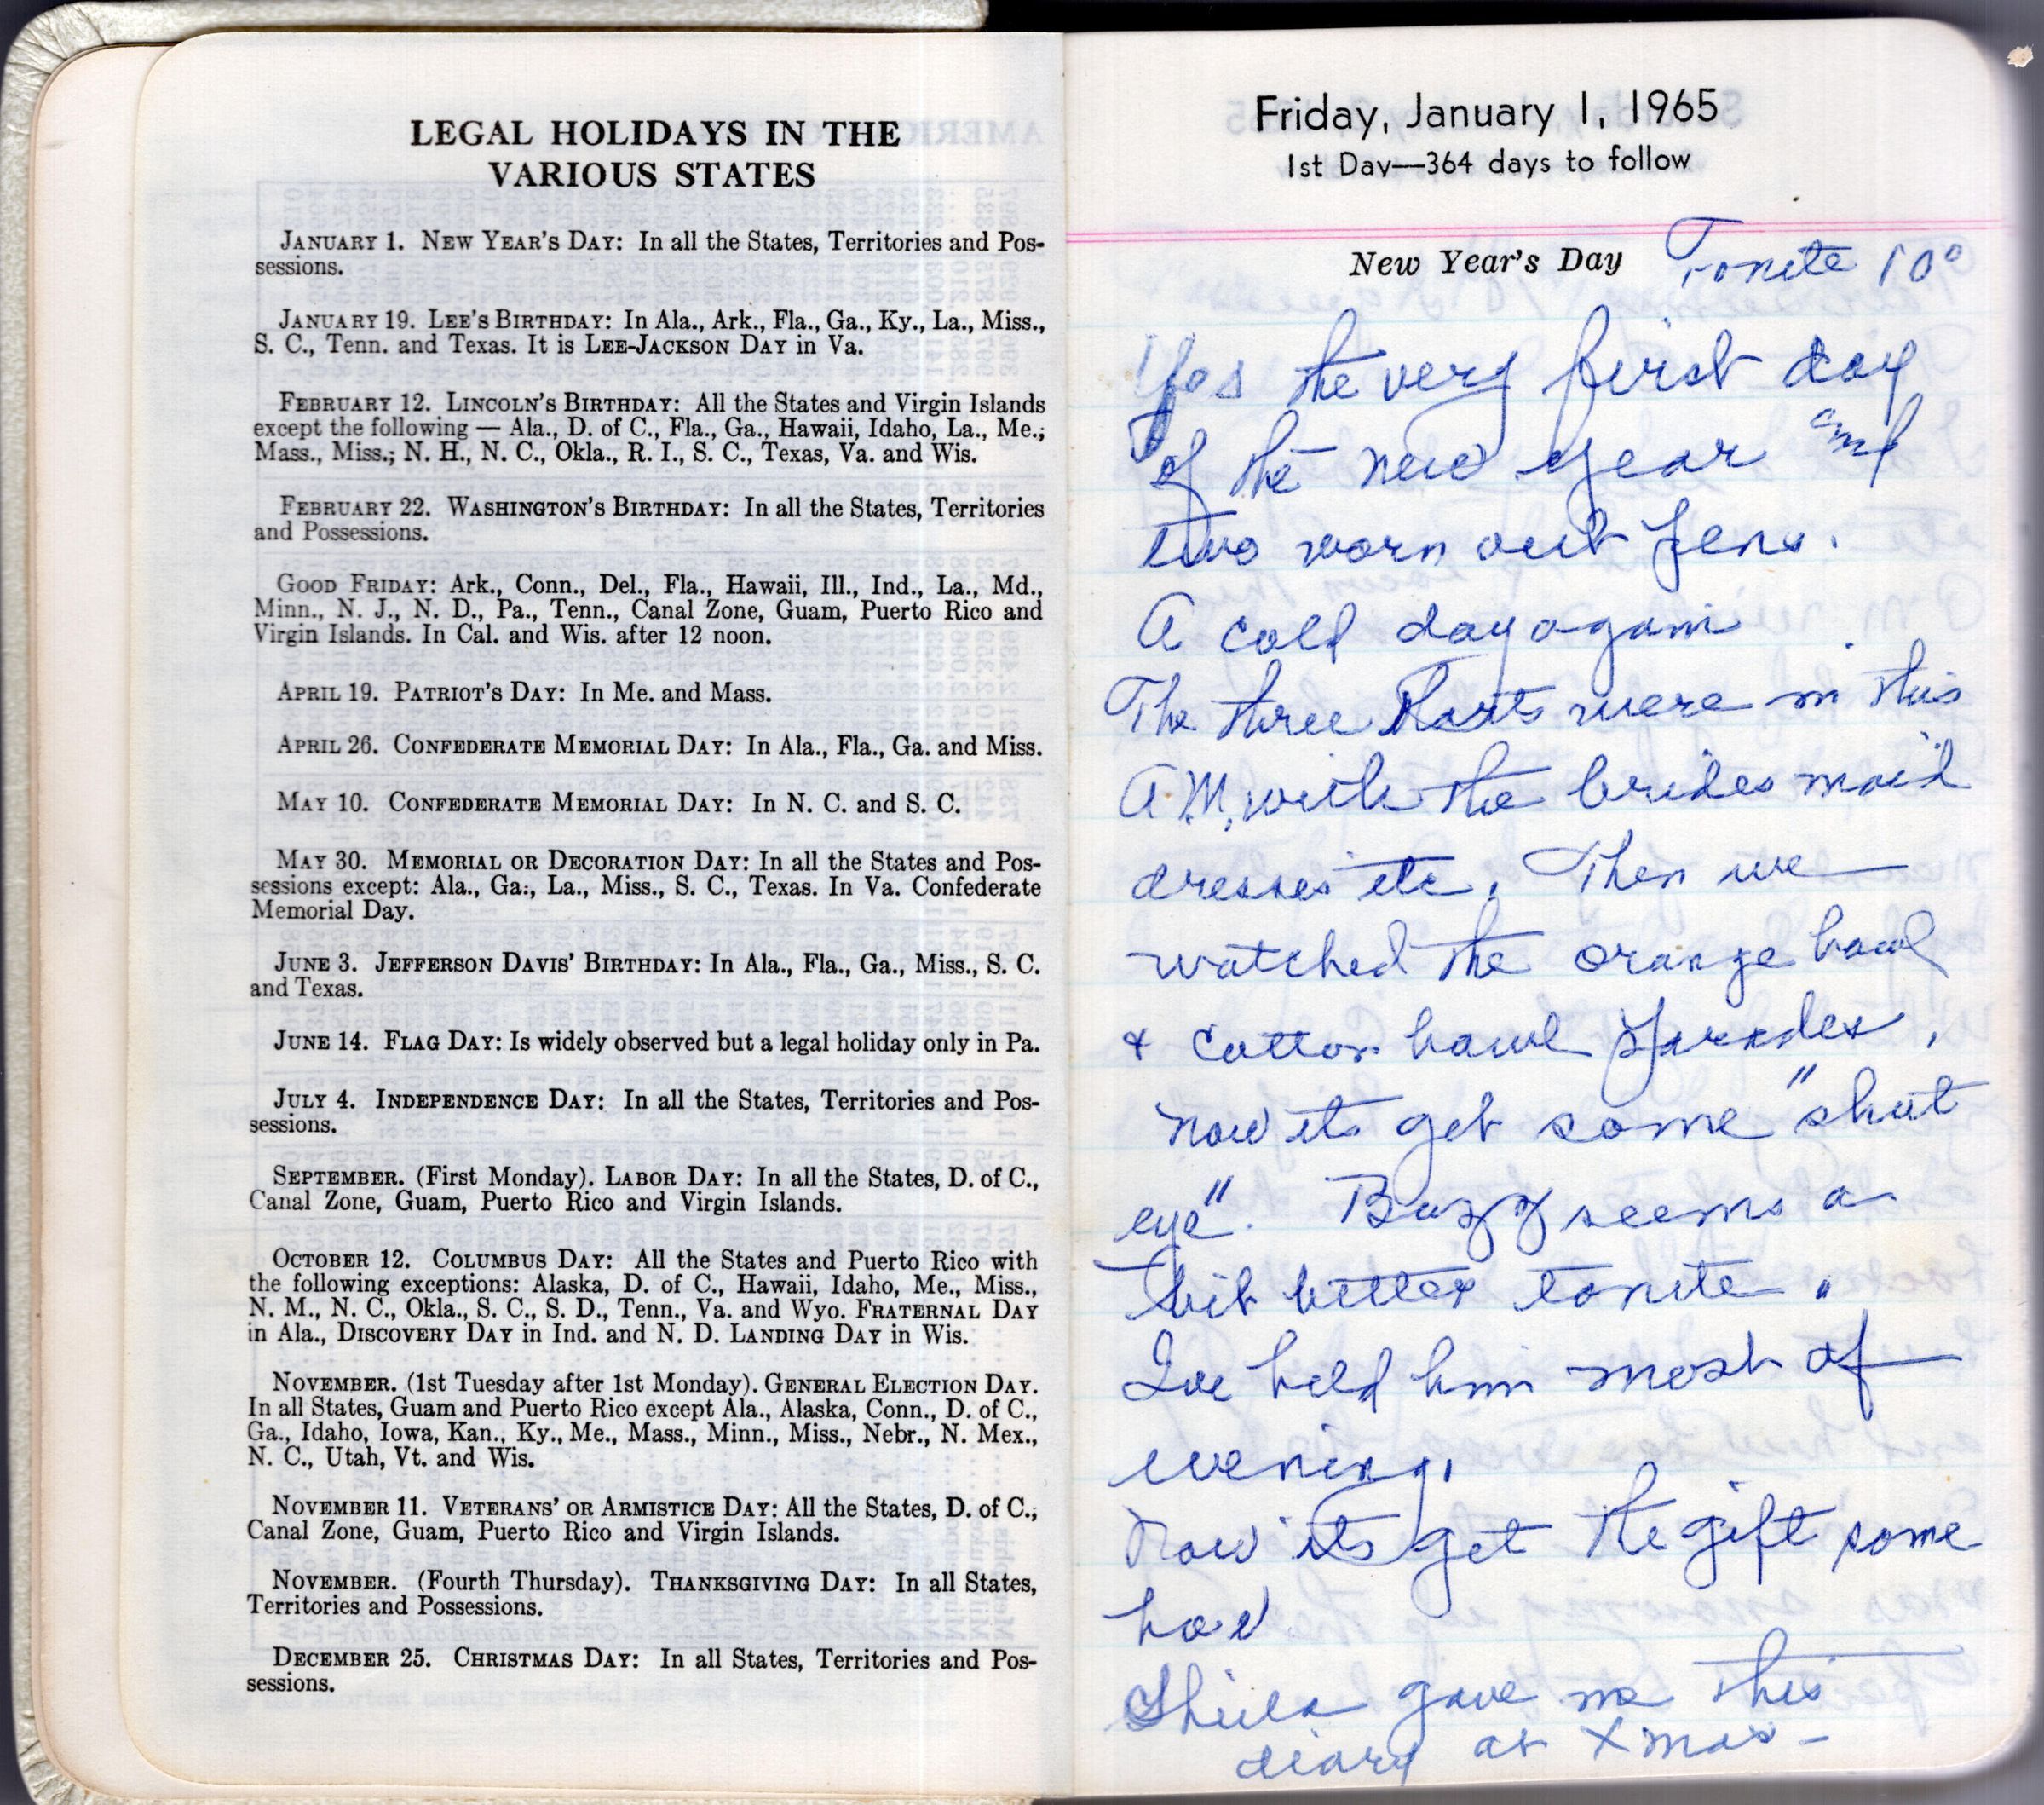 LEGAL HOLIDAYS IN THE
VARIOUS STATES
JANUARY 1. NEW YEAR'S DAY: In all the States, Territories and Pos-
sessions.
JANUARY 19. LEE'S BIRTHDAY: In Ala., Ark., Fla., Ga., Ky., La., Miss.,
S. C., Tenn. and Texas. It is LEE-JACKSON DAY in Va.
FEBRUARY 12. LINCOLN'S BIRTHDAY: All the States and Virgin Islands
except the following — Ala., D. of C., Fla., Ga., Hawaii, Idaho, La., Me.,
Mass., Miss.; N. H., N. C., Okla., R. I., S. C., Texas, Va. and Wis.
FEBRUARY 22. WASHINGTON'S BIRTHDAY: In all the States, Territories
and Possessions.
GOOD FRIDAY: Ark., Conn., Del., Fla., Hawaii, Ill., Ind., La., Md.,
Minn., N. J., N. D., Pa., Tenn., Canal Zone, Guam, Puerto Rico and
Virgin Islands. In Cal. and Wis. after 12 noon.
APRIL 19. PATRIOT'S DAY: In Me. and Mass.
APRIL 26. CONFEDERATE MEMORIAL DAY: In Ala., Fla., Ga. and Miss.
MAY 10. CONFEDERATE MEMORIAL DAY: In N. C. and S. C.
MAY 30. MEMORIAL OR DECORATION DAY: In all the States and Pos-
sessions except: Ala., Ga., La., Miss., S. C., Texas. In Va. Confederate
Memorial Day.
JUNE 3. JEFFERSON DAVIS' BIRTHDAY: In Ala., Fla., Ga., Miss., S. C.
and Texas.
JUNE 14. FLAG DAY: Is widely observed but a legal holiday only in Pa.
JULY 4. INDEPENDENCE DAY: In all the States, Territories and Pos-
sessions.
SEPTEMBER. (First Monday). LABOR DAY: In all the States, D. of C.,
Canal Zone, Guam, Puerto Rico and Virgin Islands.
OCTOBER 12. COLUMBUS DAY: All the States and Puerto Rico with
the following exceptions: Alaska, D. of C., Hawaii, Idaho, Me., Miss.,
N. M., N. C., Okla., S. C., S. D., Tenn., Va. and Wyo. FRATERNAL DAY
in Ala., DISCOVERY DAY in Ind. and N. D. LANDING DAY in Wis.
NOVEMBER. (1st Tuesday after 1st Monday). GENERAL ELECTION DAY.
In all States, Guam and Puerto Rico except Ala., Alaska, Conn., D. of C.,
Ga., Idaho, Iowa, Kan., Ky., Me., Mass., Minn., Miss., Nebr., N. Mex.,
N. C., Utah, Vt. and Wis.
NOVEMBER 11. VETERANS' OR ARMISTICE DAY: All the States, D. of C.,
Canal Zone, Guam, Puerto Rico and Virgin Islands.
NOVEMBER. (Fourth Thursday). THANKSGIVING DAY: In all States,
Territories and Possessions.
DECEMBER 25. CHRISTMAS DAY: In all States, Territories and Pos-
sessions.
Friday, January 1, 1965
1st Day—364 days to follow
New Year's Day Tonite 10°
Yes the very first day
of the new year and
two worn out pens.
A cold day again
The three were in this
A.M. with the brides maid
dresses etc. Then we
watched the orange bowl
& cotton bowl parades,
now its get some "shut
eye". Buzzy seems a
bit better tonite.
Ive held him most of
evening.
Now its get the gift some
how
Shiela gave me this
diary at Xmas –